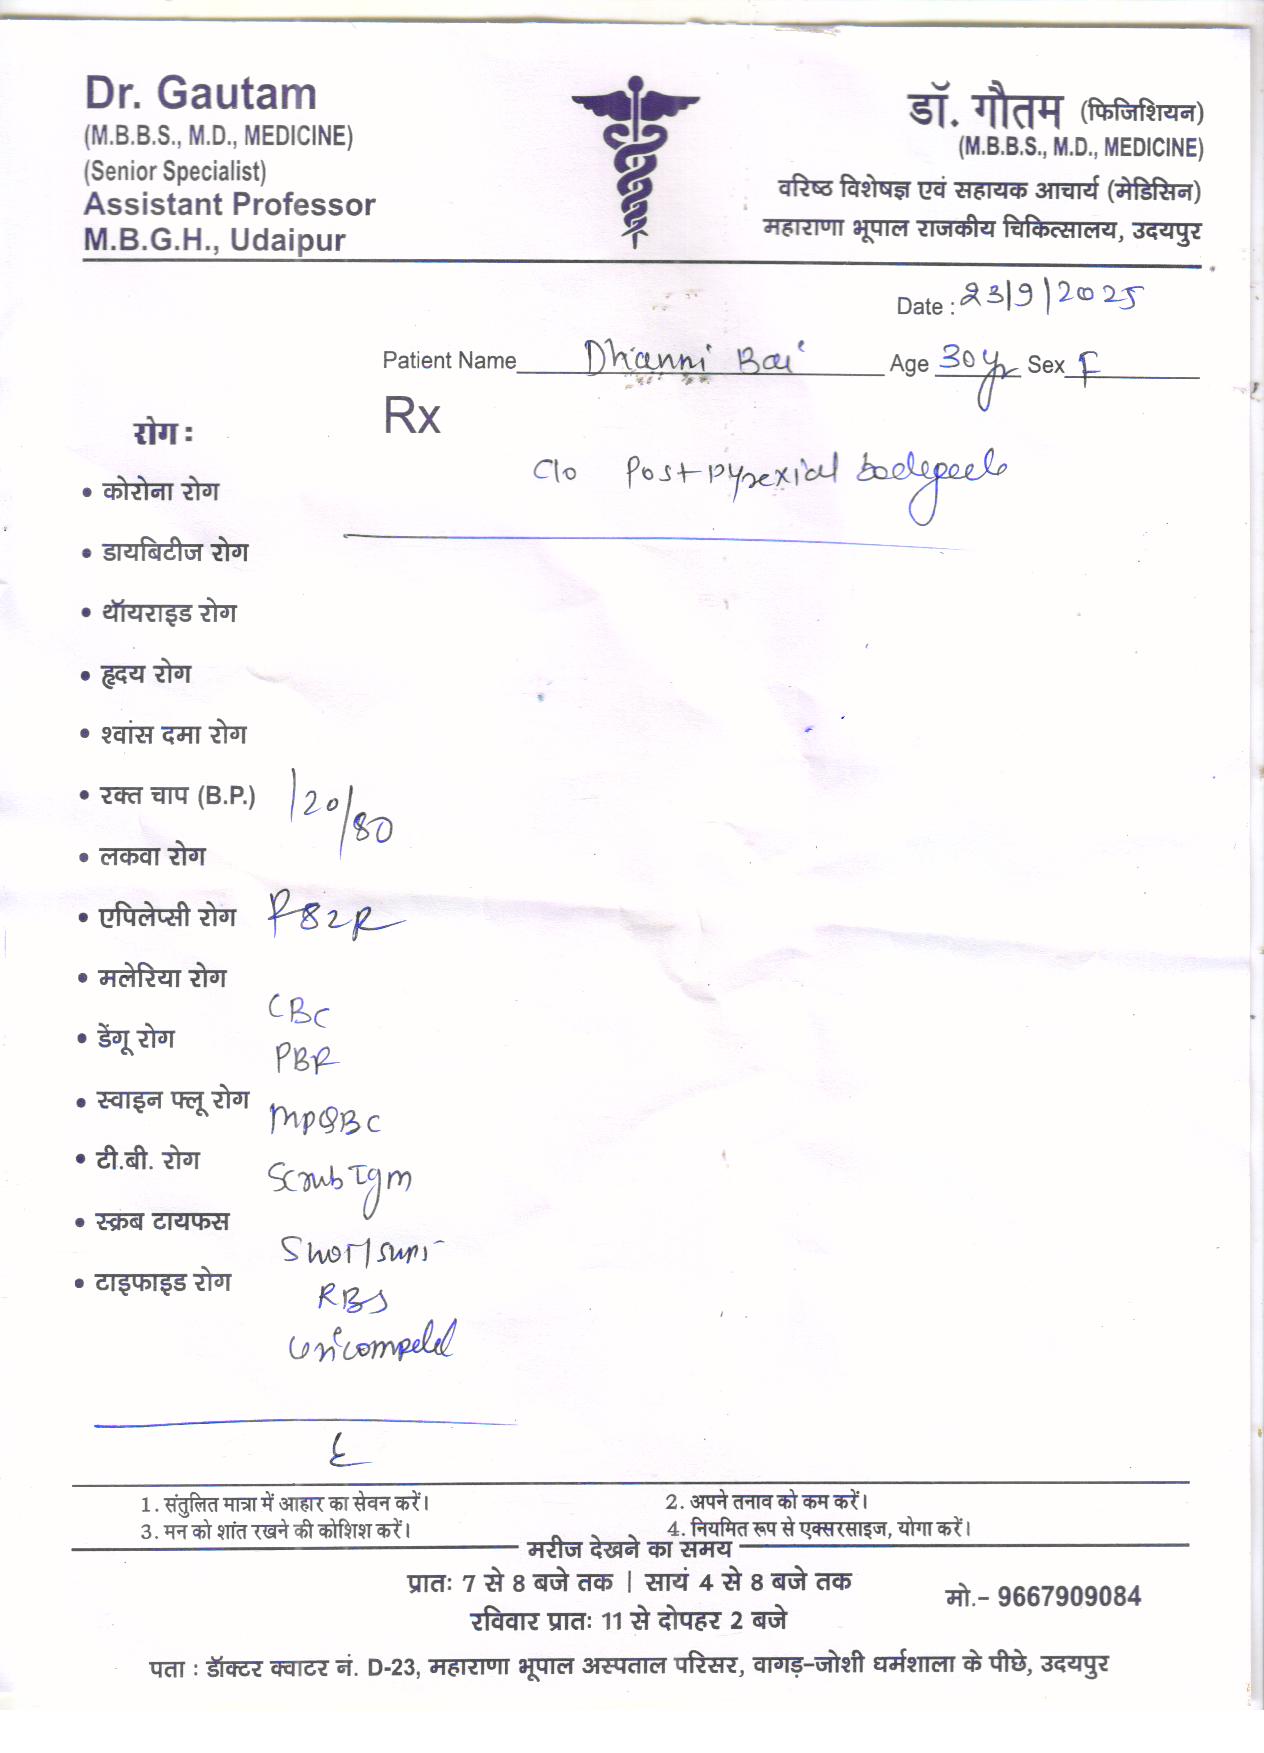 Dr. Gautam
(M.B.B.S., M.D., MEDICINE)
(Senior Specialist)
Assistant Professor
M.B.G.H., Udaipur
डॉ. गौतम (फिजिशियन)
(M.B.B.S., M.D., MEDICINE)
वरिष्ठ विशेषज्ञ एवं सहायक आचार्य (मेडिसिन)
महाराणा भूपाल राजकीय चिकित्सालय, उदयपुर
Date : 23/9/2025
Patient Name Dhanni Bai Age 30yr Sex F
Rx
C/o Post pyrexial
रोग :
• कोरोना रोग
• डायबिटीज रोग
• थॉयराइड रोग
• हृदय रोग
• श्वांस दमा रोग
• रक्त चाप (B.P.) 120/80
• लकवा रोग
• एपिलेप्सी रोग
• मलेरिया रोग
CBC
• डेंगू रोग
PBF
• स्वाइन फ्लू रोग
MPQBC
• टी.बी. रोग
Scrub IgM
• स्क्रब टायफस
• टाइफाइड रोग
RBS
1. संतुलित मात्रा में आहार का सेवन करें।
2. अपने तनाव को कम करें।
3. मन को शांत रखने की कोशिश करें।
4. नियमित रूप से एक्सरसाइज, योगा करें।
मरीज देखने का समय
प्रातः 7 से 8 बजे तक | सायं 4 से 8 बजे तक
रविवार प्रातः 11 से दोपहर 2 बजे
मो.- 9667909084
पता : डॉक्टर क्वाटर नं. D-23, महाराणा भूपाल अस्पताल परिसर, वागड़-जोशी धर्मशाला के पीछे, उदयपुर